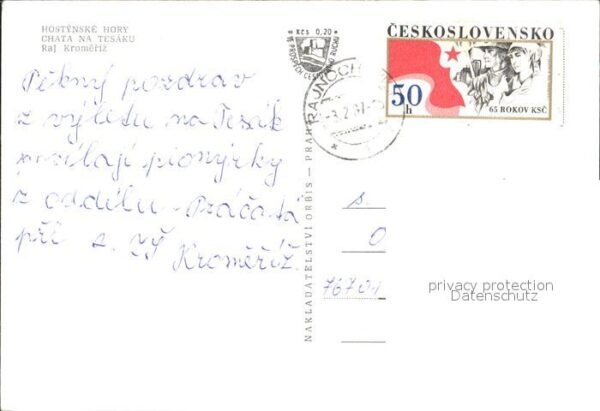 HOSTÝNSKÉ HORY
CHATA NA TESÁKU
Raj Kroměříž
Pěkný pozdrav
z výletu na Tesák
posílají pionýrky
z oddílu Práčata
při 2. zš
Kroměříž.
NAKLADATELSTVÍ ORBIS — PRAHA
Kčs 0,20
RAJNOCH
ČESKOSLOVENSKO
50 h
65 ROKOV KSČ
s.
O
76701
privacy protection
Datenschutz